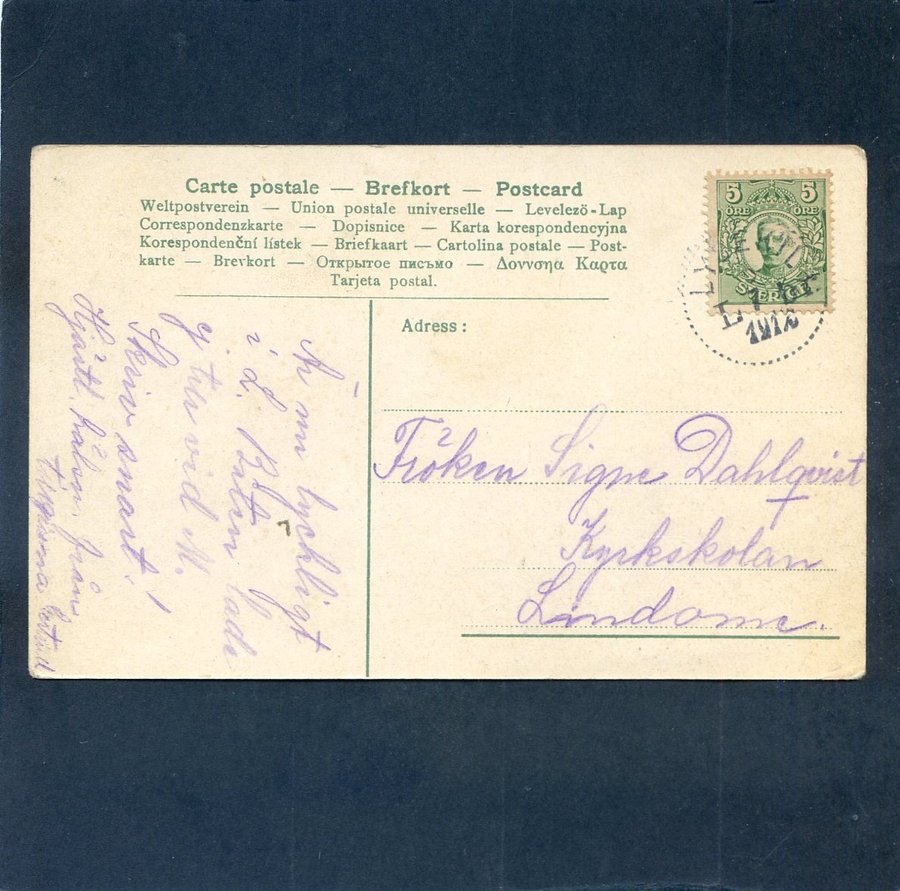 Carte postale — Brefkort — Postcard
Weltpostverein — Union postale universelle — Levelező-Lap
Correspondenzkarte — Dopisnice — Karta korespondencyjna
Korespondenční lístek — Briefkaart — Cartolina postale — Post-
karte — Brevkort — Открытое письмо — Δοννσηα Καρτα
Tarjeta postal.
Adress:
5 5
ÖRE ÖRE
SVERIGE
1912
Fröken Signe Dahlqvist
Kyrkskolan
Lindome.
lychligt
i L.
vid M.
Skriv snart!
Hjärtl. från